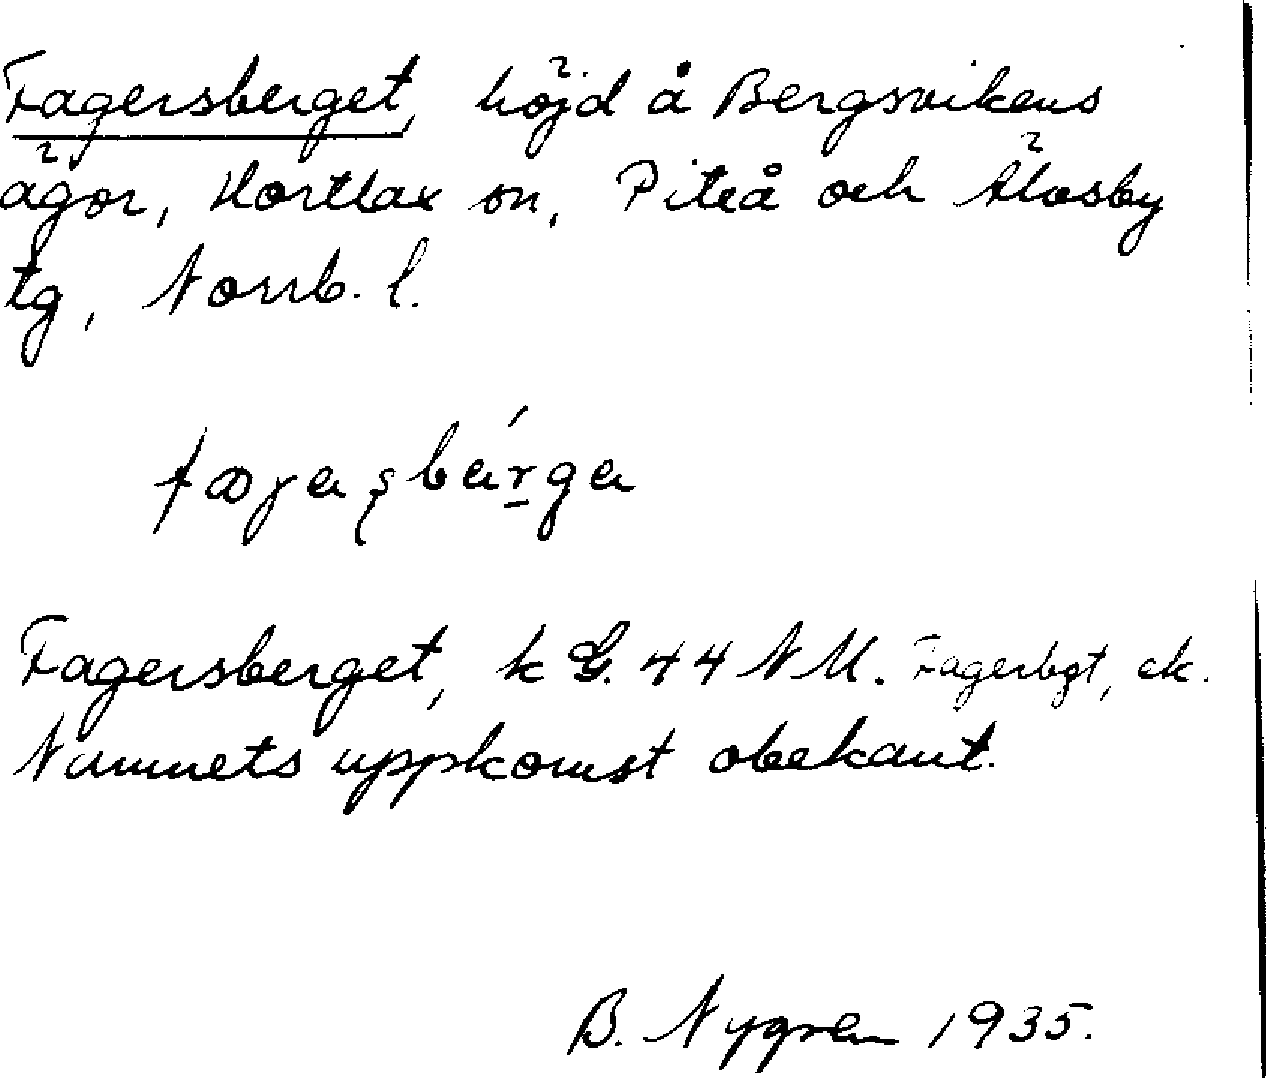 Fagersberget, höjd å Bergsvikens
ägor, Hortlax sn, Piteå och Älvsby
tg, Norrb. l.
Fagersberget, k G. 44 NM. Fagerbgt, ek.
Namnets uppkomst obekant.
B. Nygren 1935.